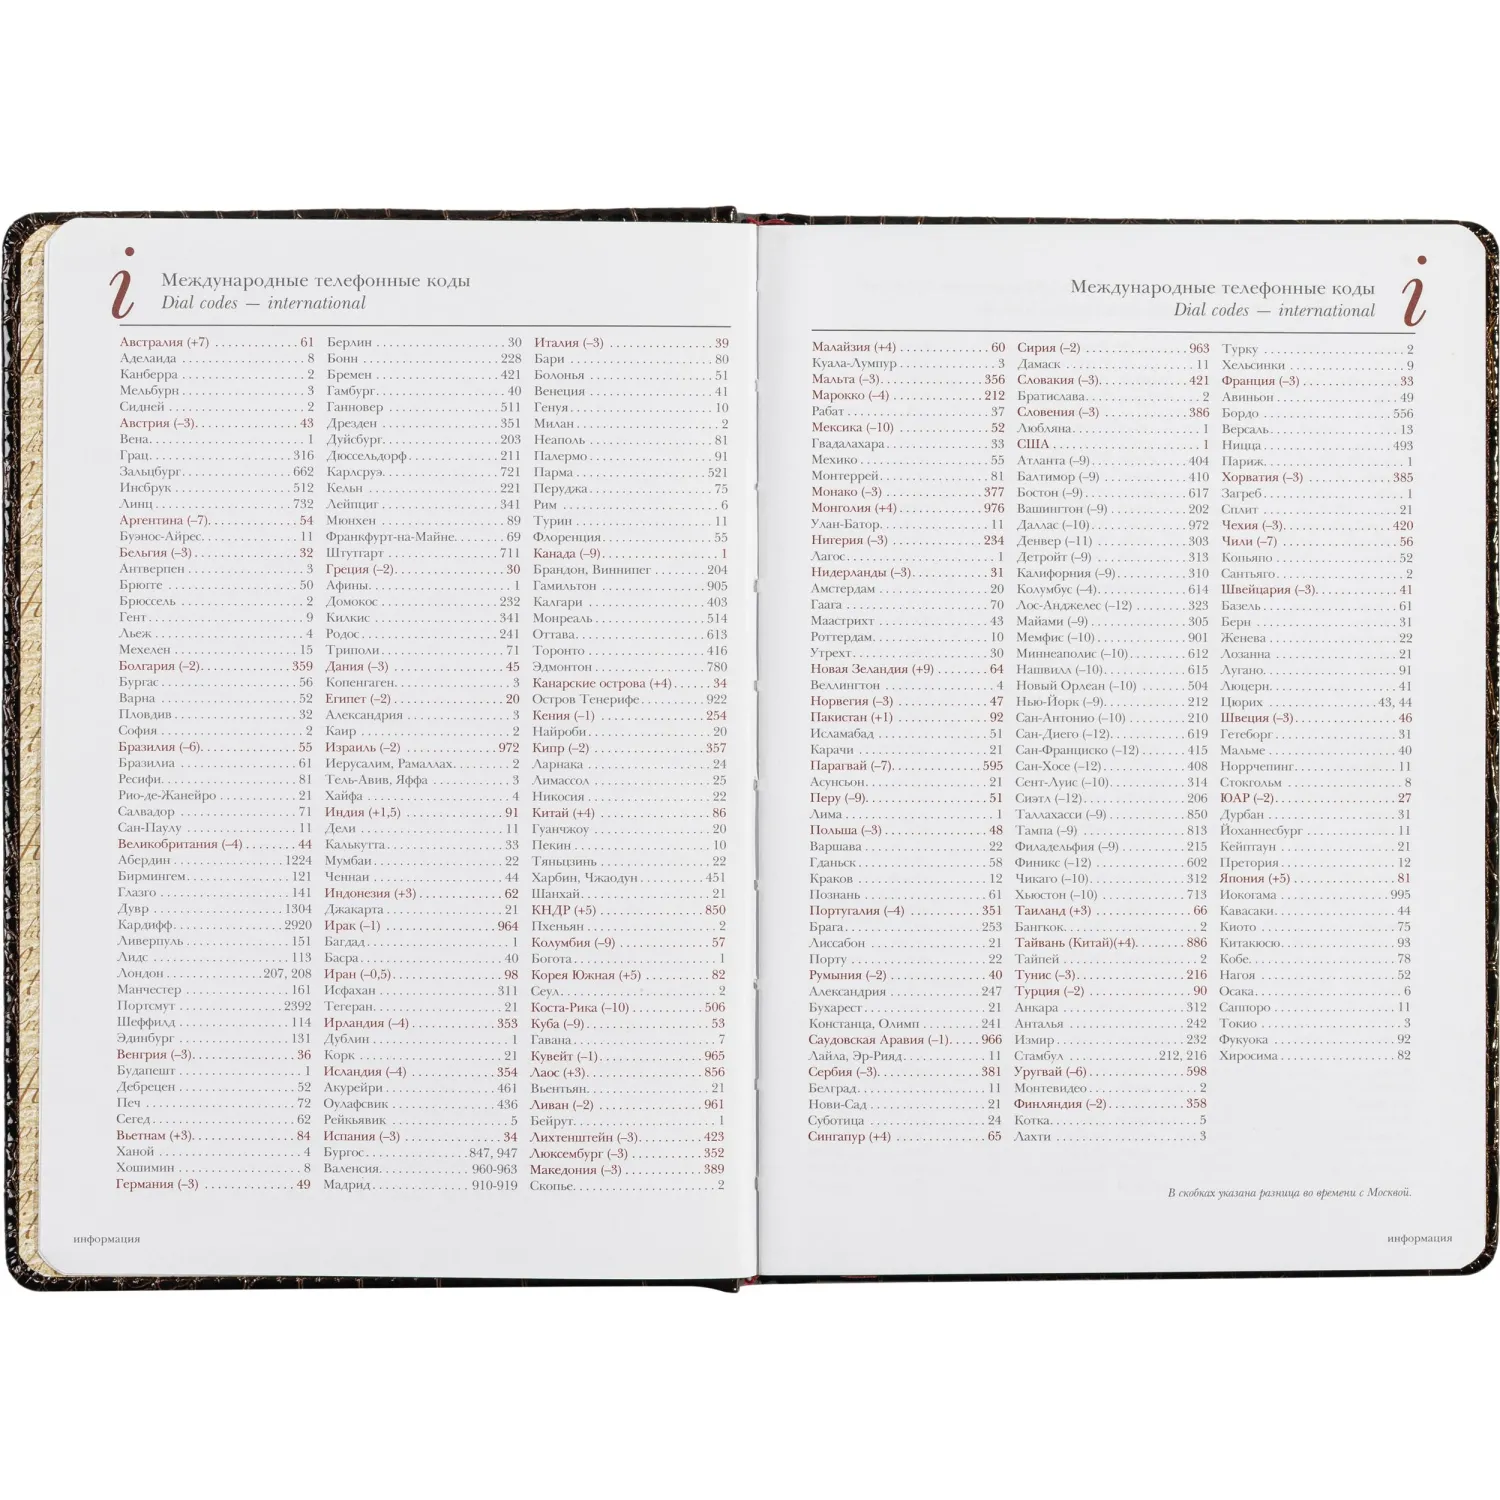 i
Международные телефонные коды
Dial codes — international
Австралия (+7) ............ 61
Аделаида ............ 8
Канберра ............ 2
Мельбурн ............ 3
Сидней ............ 2
Австрия (–3). ............ 43
Вена. ............ 1
Грац. ............ 316
Зальцбург. ............ 662
Инсбрук ............ 512
Линц ............ 732
Аргентина (–7). ............ 54
Буэнос-Айрес. ............ 11
Бельгия (–3) ............ 32
Антверпен ............ 3
Брюгге ............ 50
Брюссель ............ 2
Гент ............ 9
Льеж ............ 4
Мехелен ............ 15
Болгария (–2). ............ 359
Бургас ............ 56
Варна ............ 52
Пловдив ............ 32
София ............ 2
Бразилия (–6). ............ 55
Бразилиа ............ 61
Ресифи. ............ 81
Рио-де-Жанейро ............ 21
Салвадор ............ 71
Сан-Паулу ............ 11
Великобритания (–4) ............ 44
Абердин ............ 1224
Бирмингем ............ 121
Глазго ............ 141
Дувр ............ 1304
Кардифф ............ 2920
Ливерпуль ............ 151
Лидс ............ 113
Лондон ............ 207, 208
Манчестер ............ 161
Портсмут ............ 2392
Шеффилд ............ 114
Эдинбург ............ 131
Венгрия (–3). ............ 36
Будапешт ............ 1
Дебрецен ............ 52
Печ ............ 72
Сегед ............ 62
Вьетнам (+3). ............ 84
Ханой ............ 4
Хошимин ............ 8
Германия (–3) ............ 49
Берлин ............ 30
Бонн ............ 228
Бремен ............ 421
Гамбург ............ 40
Ганновер ............ 511
Дрезден ............ 351
Дуйсбург. ............ 203
Дюссельдорф ............ 211
Карлсруэ. ............ 721
Кельн ............ 221
Лейпциг ............ 341
Мюнхен ............ 89
Франкфурт-на-Майне. ............ 69
Штутгарт ............ 711
Греция (–2). ............ 30
Афины. ............ 1
Домокос ............ 232
Килкис ............ 341
Родос ............ 241
Триполи ............ 71
Дания (–3) ............ 45
Копенгаген. ............ 3
Египет (–2) ............ 20
Александрия ............ 3
Каир ............ 2
Израиль (–2) ............ 972
Иерусалим, Рамаллах. ............ 2
Тель-Авив, Яффа ............ 3
Хайфа ............ 4
Индия (+1,5) ............ 91
Дели ............ 11
Калькутта ............ 33
Мумбаи ............ 22
Ченнаи ............ 44
Индонезия (+3) ............ 62
Джакарта ............ 21
Ирак (–1) ............ 964
Багдад ............ 1
Басра ............ 40
Иран (–0,5) ............ 98
Исфахан ............ 311
Тегеран. ............ 21
Ирландия (–4) ............ 353
Дублин ............ 1
Корк ............ 21
Исландия (–4) ............ 354
Акурейри ............ 461
Оулафсвик ............ 436
Рейкьявик ............ 5
Испания (–3) ............ 34
Бургос ............ 847, 947
Валенсия. ............ 960-963
Мадрид ............ 910-919
Италия (–3) ............ 39
Бари ............ 80
Болонья ............ 51
Венеция ............ 41
Генуя ............ 10
Милан ............ 2
Неаполь ............ 81
Палермо ............ 91
Парма ............ 521
Перуджа ............ 75
Рим ............ 6
Турин ............ 11
Флоренция ............ 55
Канада (–9) ............ 1
Брандон, Виннипег ............ 204
Гамильтон ............ 905
Калгари ............ 403
Монреаль ............ 514
Оттава. ............ 613
Торонто ............ 416
Эдмонтон ............ 780
Канарские острова (+4) ............ 34
Остров Тенерифе ............ 922
Кения (–1) ............ 254
Найроби ............ 20
Кипр (–2) ............ 357
Ларнака ............ 24
Лимассол ............ 25
Никосия ............ 22
Китай (+4) ............ 86
Гуанчжоу ............ 20
Пекин ............ 10
Тяньцзинь ............ 22
Харбин, Чжаодун ............ 451
Шанхай. ............ 21
КНДР (+5) ............ 850
Пхеньян ............ 2
Колумбия (–9) ............ 57
Богота ............ 1
Корея Южная (+5) ............ 82
Сеул. ............ 2
Коста-Рика (–10) ............ 506
Куба (–9) ............ 53
Гавана ............ 7
Кувейт (–1) ............ 965
Лаос (+3) ............ 856
Вьентьян. ............ 21
Ливан (–2) ............ 961
Бейрут. ............ 1
Лихтенштейн (–3). ............ 423
Люксембург (–3) ............ 352
Македония (–3) ............ 389
Скопье. ............ 2
информация
Международные телефонные коды
Dial codes — international
i
Малайзия (+4) ............ 60
Куала-Лумпур ............ 3
Мальта (–3). ............ 356
Марокко (–4) ............ 212
Рабат ............ 37
Мексика (–10) ............ 52
Гвадалахара ............ 33
Мехико ............ 55
Монтеррей. ............ 81
Монако (–3) ............ 377
Монголия (+4) ............ 976
Улан-Батор. ............ 11
Нигерия (–3) ............ 234
Лагос ............ 1
Нидерланды (–3). ............ 31
Амстердам ............ 20
Гаага ............ 70
Маастрихт ............ 43
Роттердам. ............ 10
Утрехт. ............ 30
Новая Зеландия (+9) ............ 64
Веллингтон ............ 4
Норвегия (–3) ............ 47
Пакистан (+1) ............ 92
Исламабад ............ 51
Карачи ............ 21
Парагвай (–7). ............ 595
Асунсьон. ............ 21
Перу (–9). ............ 51
Лима ............ 1
Польша (–3) ............ 48
Варшава ............ 22
Гданьск ............ 58
Краков ............ 12
Познань ............ 61
Португалия (–4) ............ 351
Брага ............ 253
Лиссабон ............ 21
Порту ............ 22
Румыния (–2) ............ 40
Александрия ............ 247
Бухарест ............ 21
Констанца, Олимп ............ 241
Саудовская Аравия (–1). ............ 966
Лайла, Эр-Рияд. ............ 11
Сербия (–3). ............ 381
Белград. ............ 11
Нови-Сад ............ 21
Суботица ............ 24
Сингапур (+4) ............ 65
Сирия (–2) ............ 963
Дамаск ............ 11
Словакия (–3). ............ 421
Братислава. ............ 2
Словения (–3) ............ 386
Любляна. ............ 1
США ............ 1
Атланта (–9) ............ 404
Балтимор (–9) ............ 410
Бостон (–9) ............ 617
Вашингтон (–9) ............ 202
Даллас (–10) ............ 972
Денвер (–11) ............ 303
Детройт (–9) ............ 313
Калифорния (–9) ............ 310
Колумбус (–4) ............ 614
Лос-Анджелес (–12) ............ 323
Майами (–9) ............ 305
Мемфис (–10) ............ 901
Миннеаполис (–10) ............ 612
Нашвилл (–10). ............ 615
Новый Орлеан (–10) ............ 504
Нью-Йорк (–9). ............ 212
Сан-Антонио (–10) ............ 210
Сан-Диего (–12). ............ 619
Сан-Франциско (–12) ............ 415
Сан-Хосе (–12) ............ 408
Сент-Луис (–10). ............ 314
Сиэтл (–12) ............ 206
Таллахасси (–9) ............ 850
Тампа (–9) ............ 813
Филадельфия (–9) ............ 215
Финикс (–12) ............ 602
Чикаго (–10). ............ 312
Хьюстон (–10) ............ 713
Таиланд (+3) ............ 66
Бангкок. ............ 2
Тайвань (Китай)(+4). ............ 886
Тайпей ............ 2
Тунис (–3). ............ 216
Турция (–2) ............ 90
Анкара ............ 312
Анталья ............ 242
Измир ............ 232
Стамбул ............ 212, 216
Уругвай (–6) ............ 598
Монтевидео ............ 2
Финляндия (–2) ............ 358
Котка. ............ 5
Лахти ............ 3
Турку ............ 2
Хельсинки ............ 9
Франция (–3) ............ 33
Авиньон ............ 49
Бордо ............ 556
Версаль ............ 13
Ницца ............ 493
Париж. ............ 1
Хорватия (–3) ............ 385
Загреб ............ 1
Сплит ............ 21
Чехия (–3). ............ 420
Чили (–7) ............ 56
Копьяпо ............ 52
Сантьяго ............ 2
Швейцария (–3). ............ 41
Базель ............ 61
Берн ............ 31
Женева ............ 22
Лозанна ............ 21
Лугано. ............ 91
Люцерн. ............ 41
Цюрих ............ 43, 44
Швеция (–3) ............ 46
Гетеборг ............ 31
Мальме ............ 40
Норрчепинг. ............ 11
Стокгольм ............ 8
ЮАР (–2) ............ 27
Дурбан ............ 31
Йоханнесбург ............ 11
Кейптаун ............ 21
Претория ............ 12
Япония (+5) ............ 81
Иокогама ............ 995
Кавасаки. ............ 44
Киото ............ 75
Китакюсю. ............ 93
Кобе. ............ 78
Нагоя ............ 52
Осака. ............ 6
Саппоро ............ 11
Токио ............ 3
Фукуока ............ 92
Хиросима ............ 82
В скобках указана разница во времени с Москвой.
информация